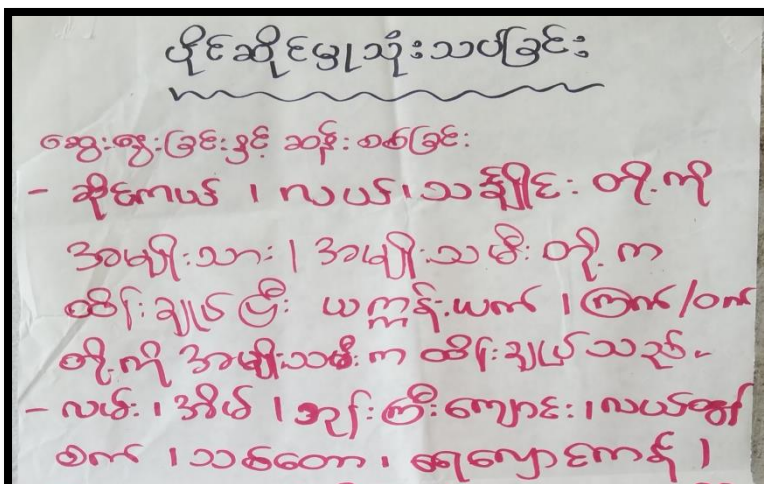 ပိုင်ဆိုင်မှုသုံးသပ်ခြင်း
ဆွေးနွေးခြင်းနှင့် ဆန်းစစ်ခြင်း
- ဆိုင်ကယ် ၊ လယ်၊သင်္ချိုင်း တို့ကို
အမျိုးသား ၊ အမျိုးသမီး တို့က
ထိန်းချုပ်ပြီး ယက္ကန်းယက် ၊ ကြက်/ဝက်
တို့ကို အမျိုးသမီးက ထိန်းချုပ်သည်။
- လမ်း ၊ အိမ် ၊ ဘုန်းကြီးကျောင်း ၊လယ်ထွန်
စက် ၊ သစ်တော ၊ ရေလှောင်ကန် ၊